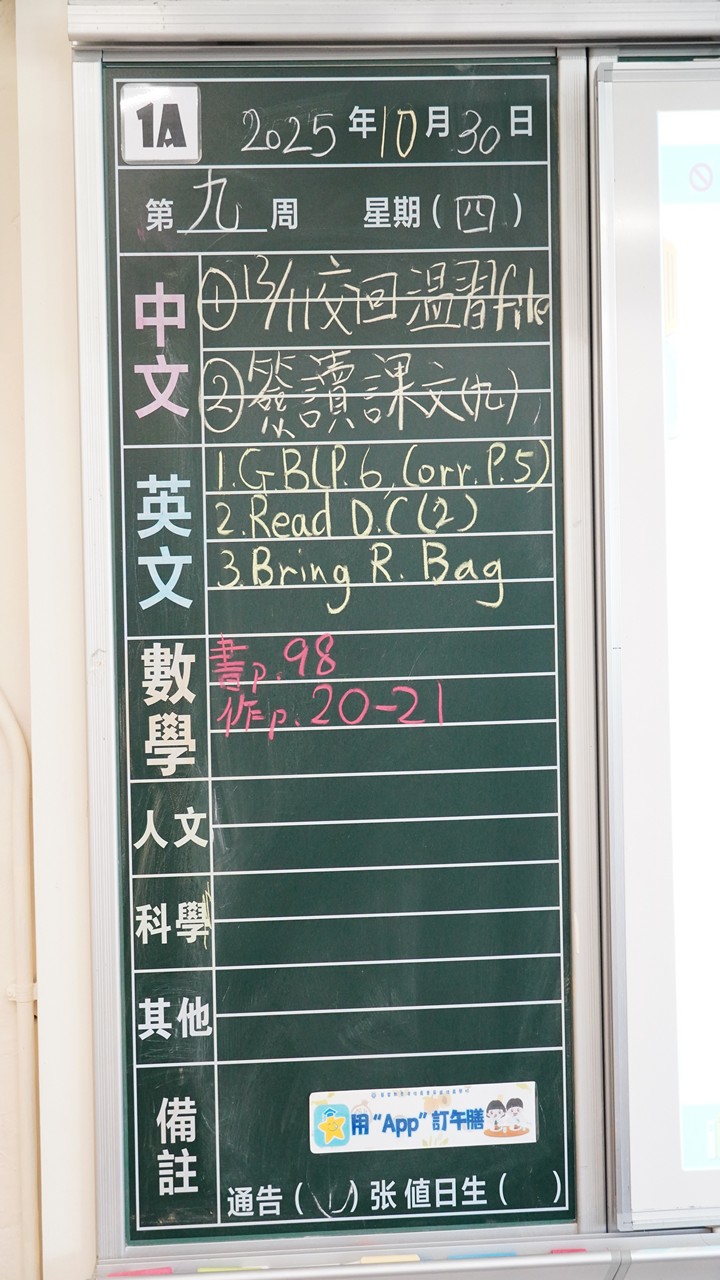 1A
2025年10月30日
第九周 星期(四)
中文
①13/11交回溫習file
②簽讀課文(九)
英文
1.G.B(P.6, Corr.P.5)
2.Read D.C(2)
3.Bring R. Bag
數學
書p.98
作p.20-21
人文
科學
其他
備註
用“App”訂午膳
通告( \ )张 值日生( )